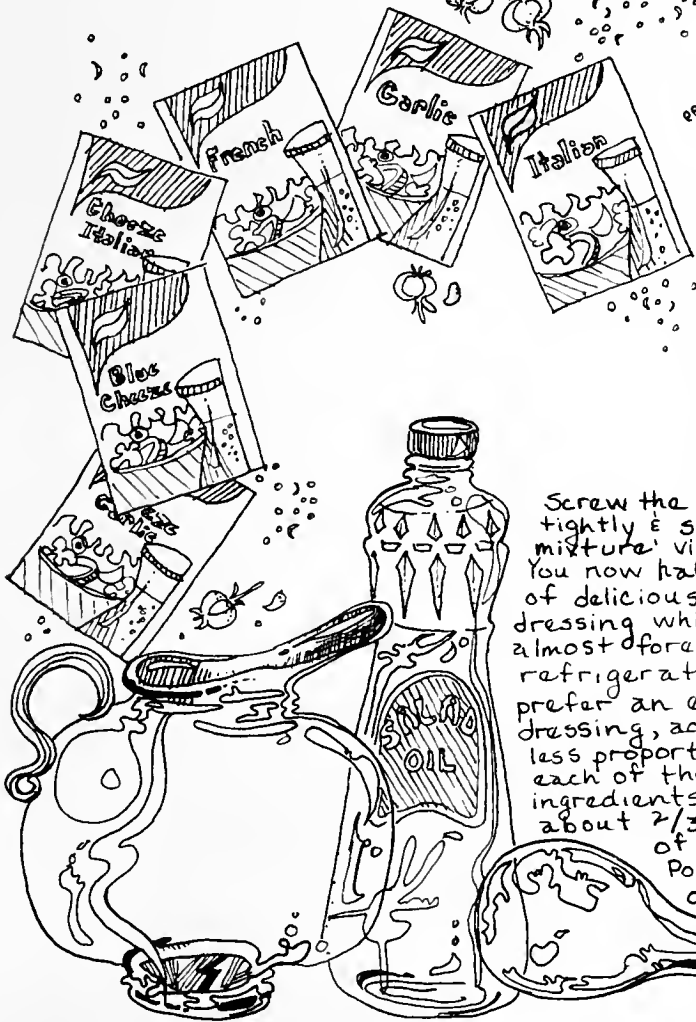 Garlic
French
Italian
Cheeze
Italian
Blue
Cheeze
Garlic
SALAD
OIL
Screw the
tightly & s
mixture' vi
You now ha
of delicious
dressing whi
almost fore
refrigerat
prefer an e
dressing, ad
less proport
each of the
ingredients
about 2/3
of
Po